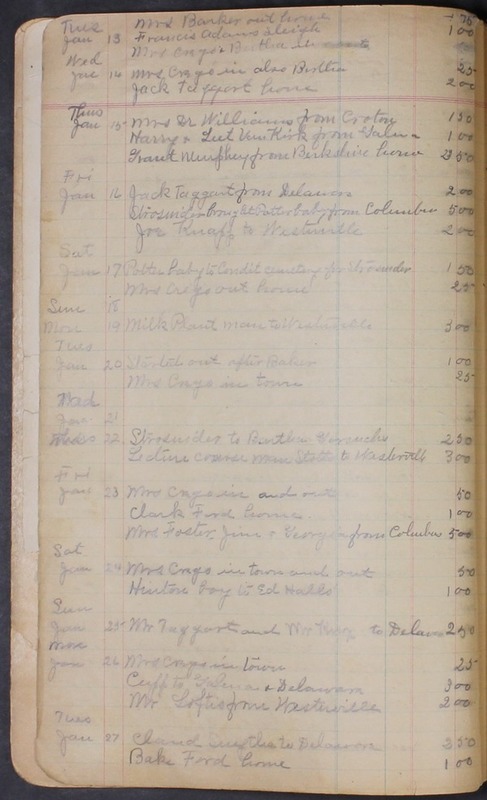 Mrs Barker out home 75
Tues
Jan 13 Francis Adams sleigh 1 00
Mrs Crego & Bertha in
Wed
Jan 14 Mrs Crego in also Bertha 25
Jack Taggart home 2 00
Thus
Jan 15 Mrs Dr Williams from Croton 1 50
Harry & Leet Van Kirk from Galena 1 00
Grant Murphey from Berkshire home 2 50
Fri
Jan 16 Jack Taggart from Delaware 2 00
Strosnider brought Potter baby from Columbus 5 00
Joe Knapp to Westerville 2 00
Sat
Jan 17 Potter baby to Condit cemetery for Strosnider 1 50
Mrs Crego out home 25
Sun 18
Mon 19 Milk Plant man to Westerville 3 00
Tues
Jan 20 Started out after Baker 1 00
Mrs Crego in town 25
Wed
Jan 21
22 Strosnider to Bertha 2 50
Lecture course man to Westerville 3 00
Fri
Jan 23 Mrs Crego in and out 50
Clark Ford home 1 00
Mrs Foster, Jim & Georgia from Columbus 5 00
Sat
Jan 24 Mrs Crego in town and out 50
Hinton boy to Ed Halls 1 00
Sun
Jan 25 Mr Taggart and Mr to Delaware 2 50
Mon
Jan 26 Mrs Crego in town 25
to Galena & Delaware 3 00
Mr Loftis from Westerville 2 00
Tues
Jan 27 to Delaware 2 50
Bake Ford home 1 00